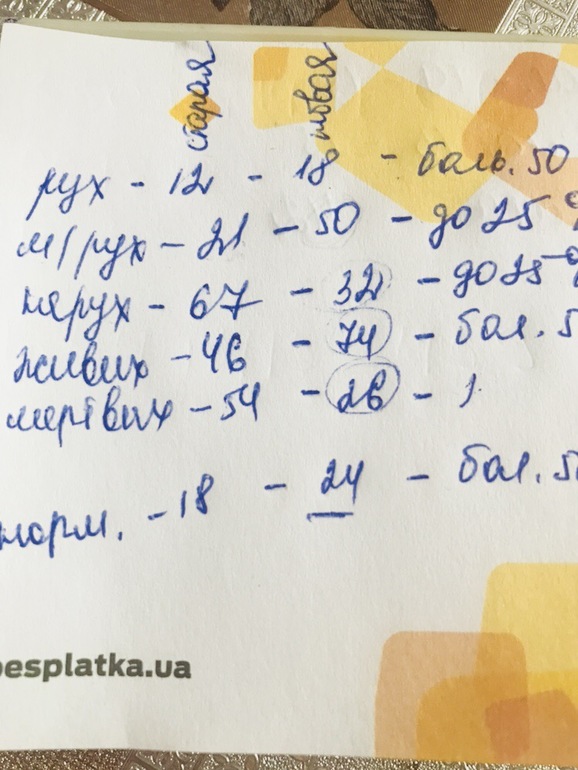 старая новая
рух - 12 - 18 - боль. 50
м/рух - 21 - 50 - до 25
нерух - 67 - 32 - до 25
живих - 46 - 74 - бол. 5
мертвих - 54 - 26 - 1
норм. - 18 - 24 - бол. 50
besplatka.ua